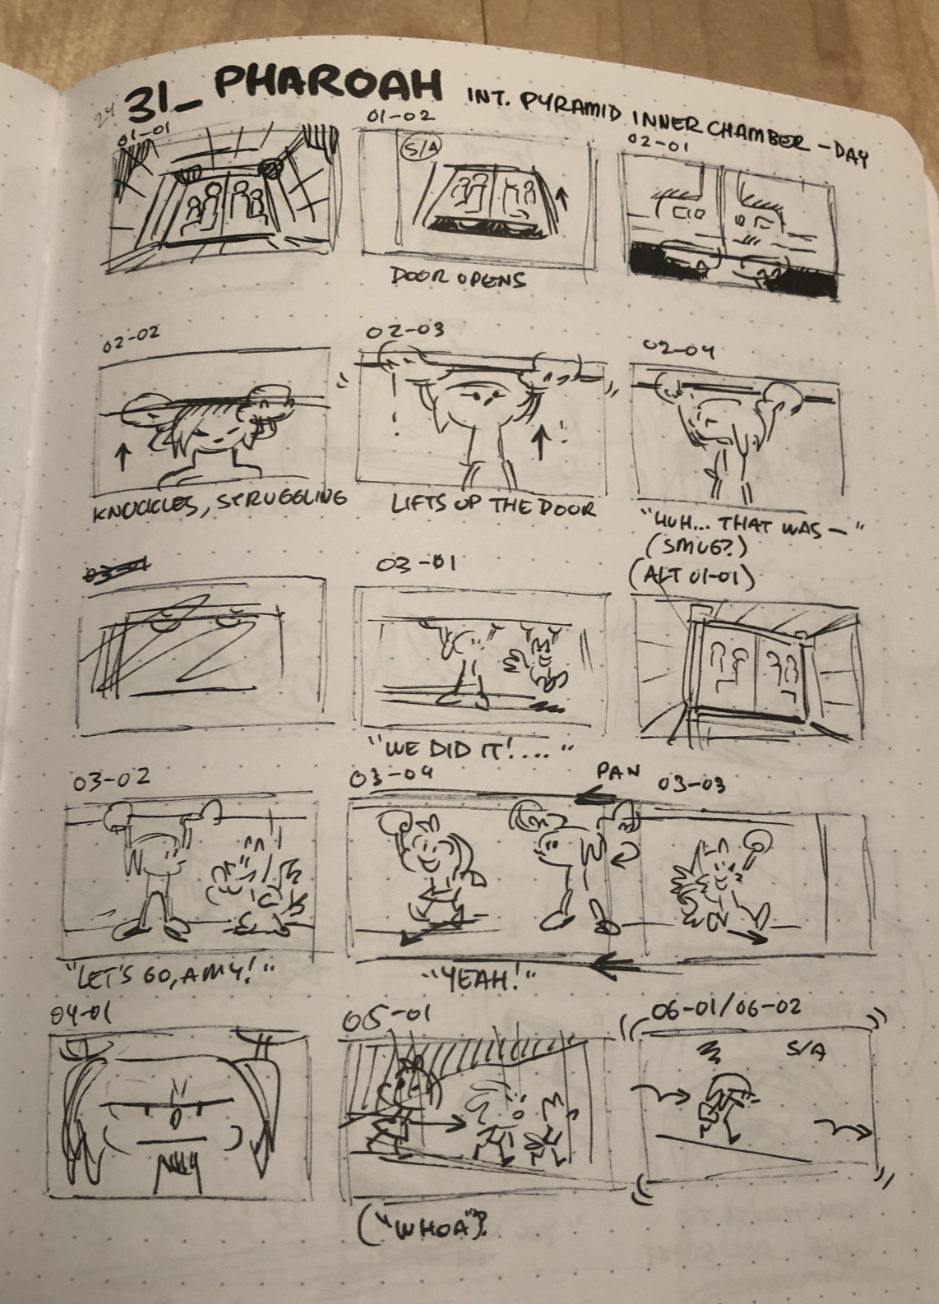 24 31_ PHAROAH INT. PYRAMID INNER CHAMBER - DAY
01-01
01-02
02-01
S/A
DOOR OPENS
02-02
02-03
02-04
KNUCKLES, STRUGGLING
LIFTS UP THE DOOR
"HUH... THAT WAS — "
(SMUG?)
(ALT 01-01)
03-01
03-01
"WE DID IT!...."
03-02
03-04
PAN
03-03
"LET'S GO, AMY!"
"YEAH!"
04-01
05-01
06-01/06-02
S/A
("WHOA"?)